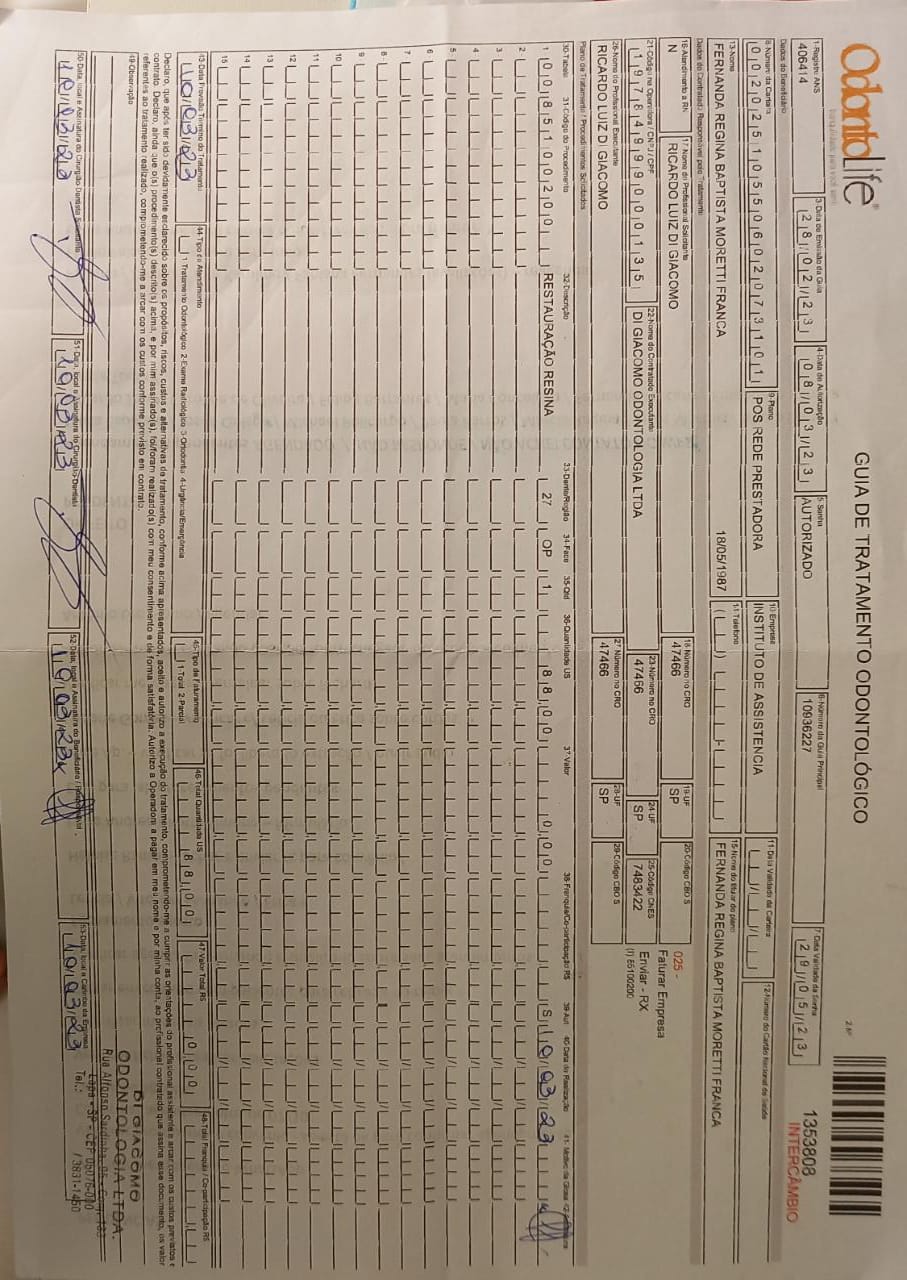 OdontoLife®
tranquilidade para você sorrir
GUIA DE TRATAMENTO ODONTOLÓGICO
2-Nº
1353808
INTERCÂMBIO
1-Registro ANS
406414
3-Data de Emissão da Guia
28/02/23
4-Data de Autorização
08/03/23
5-Senha
AUTORIZADO
6-Número da Guia Principal
10936227
7-Data Validade da Senha
29/05/23
Dados do Beneficiário
8-Número da Carteira
00202510550602073110 1
9-Plano
POS REDE PRESTADORA
10-Empresa
INSTITUTO DE ASSISTENCIA
11-Data Validade da Carteira
12-Número do Cartão Nacional de Saúde
13-Nome
FERNANDA REGINA BAPTISTA MORETTI FRANCA
18/05/1987
14-Telefone
15-Nome do titular do plano
FERNANDA REGINA BAPTISTA MORETTI FRANCA
Dados do Contratado Responsável pelo Tratamento
16-Atendimento a RN
N
17-Nome do Profissional Solicitante
RICARDO LUIZ DI GIACOMO
18-Número no CRO
47466
19-UF
SP
20-Código CBO S
025 -
Faturar Empresa
21-Código na Operadora / CNPJ / CPF
19784999000135
22-Nome do Contratado Executante
DI GIACOMO ODONTOLOGIA LTDA
23-Número no CRO
47466
24-UF
SP
25-Código CNES
7483422
Enviar - RX
(I) 85100200
26-Nome do Profissional Executante
RICARDO LUIZ DI GIACOMO
27-Número no CRO
47466
28-UF
SP
29-Código CBO S
Plano de Tratamento / Procedimentos Solicitados
30-Tabela 31-Código do Procedimento 32-Descrição 33-Dente/Região 34-Face 35-Qtd 36-Quantidade US 37-Valor 38-Franquia/Co-participação R$ 39-Aut 40-Data de Realização 41-Motivo da Glosa
1 00 85100200 RESTAURAÇÃO RESINA 27 OP 1 88,00 0,00 S 10/03/23
2
3
4
5
6
7
8
9
10
11
12
13
14
15
43-Data Previsão Término do Tratamento
10/03/23
44-Tipo de Atendimento
1-Tratamento Odontológico 2-Exame Radiológico 3-Ortodontia 4-Urgência/Emergência
45-Tipo de Faturamento
1-Total 2-Parcial
46-Total Quantidade US
88,00
47-Valor Total R$
0,00
48-Total Franquia / Co-participação R$
Declaro, que após ter sido devidamente esclarecido sobre os propósitos, riscos, custos e alternativas de tratamento, conforme acima apresentados, aceito e autorizo a execução do tratamento, comprometendo-me a cumprir as orientações do profissional assistente e arcar com os custos previstos em
contrato. Declaro, ainda que o(s) procedimento(s) descrito(s) acima, e por mim assinado(s), foi/foram realizado(s) com meu consentimento e de forma satisfatória. Autorizo a Operadora a pagar em meu nome e por minha conta, ao profissional contratado que assina esse documento, os valores
referentes ao tratamento realizado, comprometendo-me a arcar com os custos conforme previsto em contrato.
49-Observação
DI GIACOMO
ODONTOLOGIA LTDA.
Rua Alfonso Sardinha, 95
Lapa - SP - CEP 05076-000
Tel.: / 3831-1450
50-Data, local e Assinatura do Cirurgião Dentista Solicitante
10/03/23
51-Data, local e Assinatura do Cirurgião-Dentista
10/03/23
52-Data, local e Assinatura do Beneficiário / Responsável
10/03/23
53-Data, local e Carimbo da Empresa
10/03/23